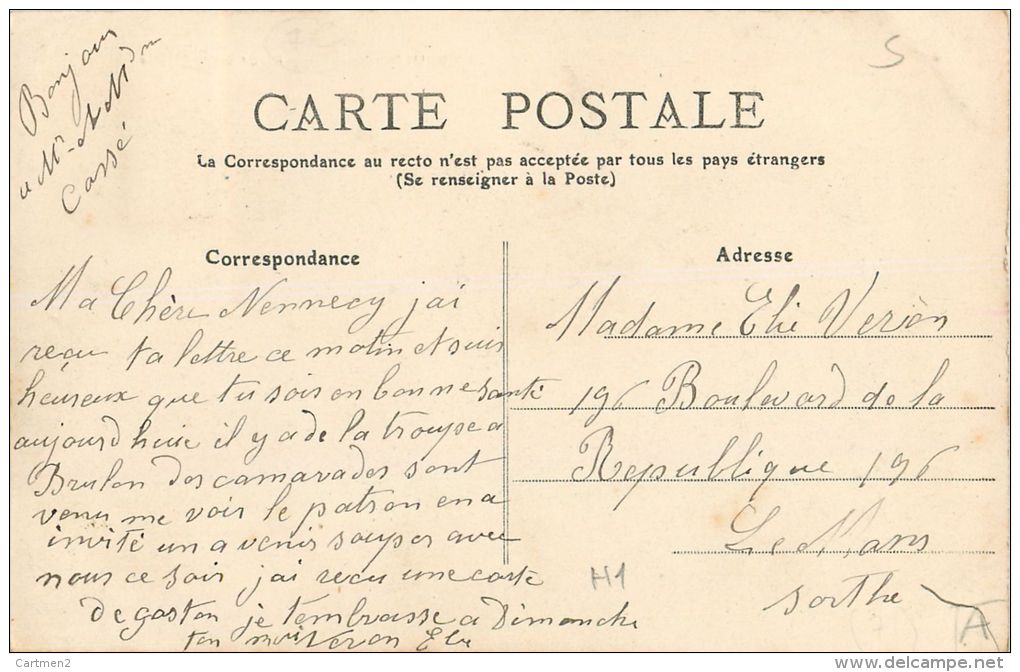 Bonjour
a Mr et Mdm
Cassé
S
CARTE POSTALE
La Correspondance au recto n'est pas acceptée par tous les pays étrangers
(Se renseigner à la Poste)
Correspondance
Ma Chère Nennecy jai
reçu ta lettre ce matin et suis
heureux que tu sois en bonne santé
aujourd huie il y a de la troupe a
Brulon des camarades sont
venu me voir le patron en a
invité un a venir souper avec
nous ce soir jai reçu une carte
de gaston je tembrasse a Dimanche
ton Veron Elie
Adresse
Madame Elie Veron
196 Boulevard de la
Republique 196
Le Mans
sarthe
H1
A
Cartmen2
www.delcampe.net